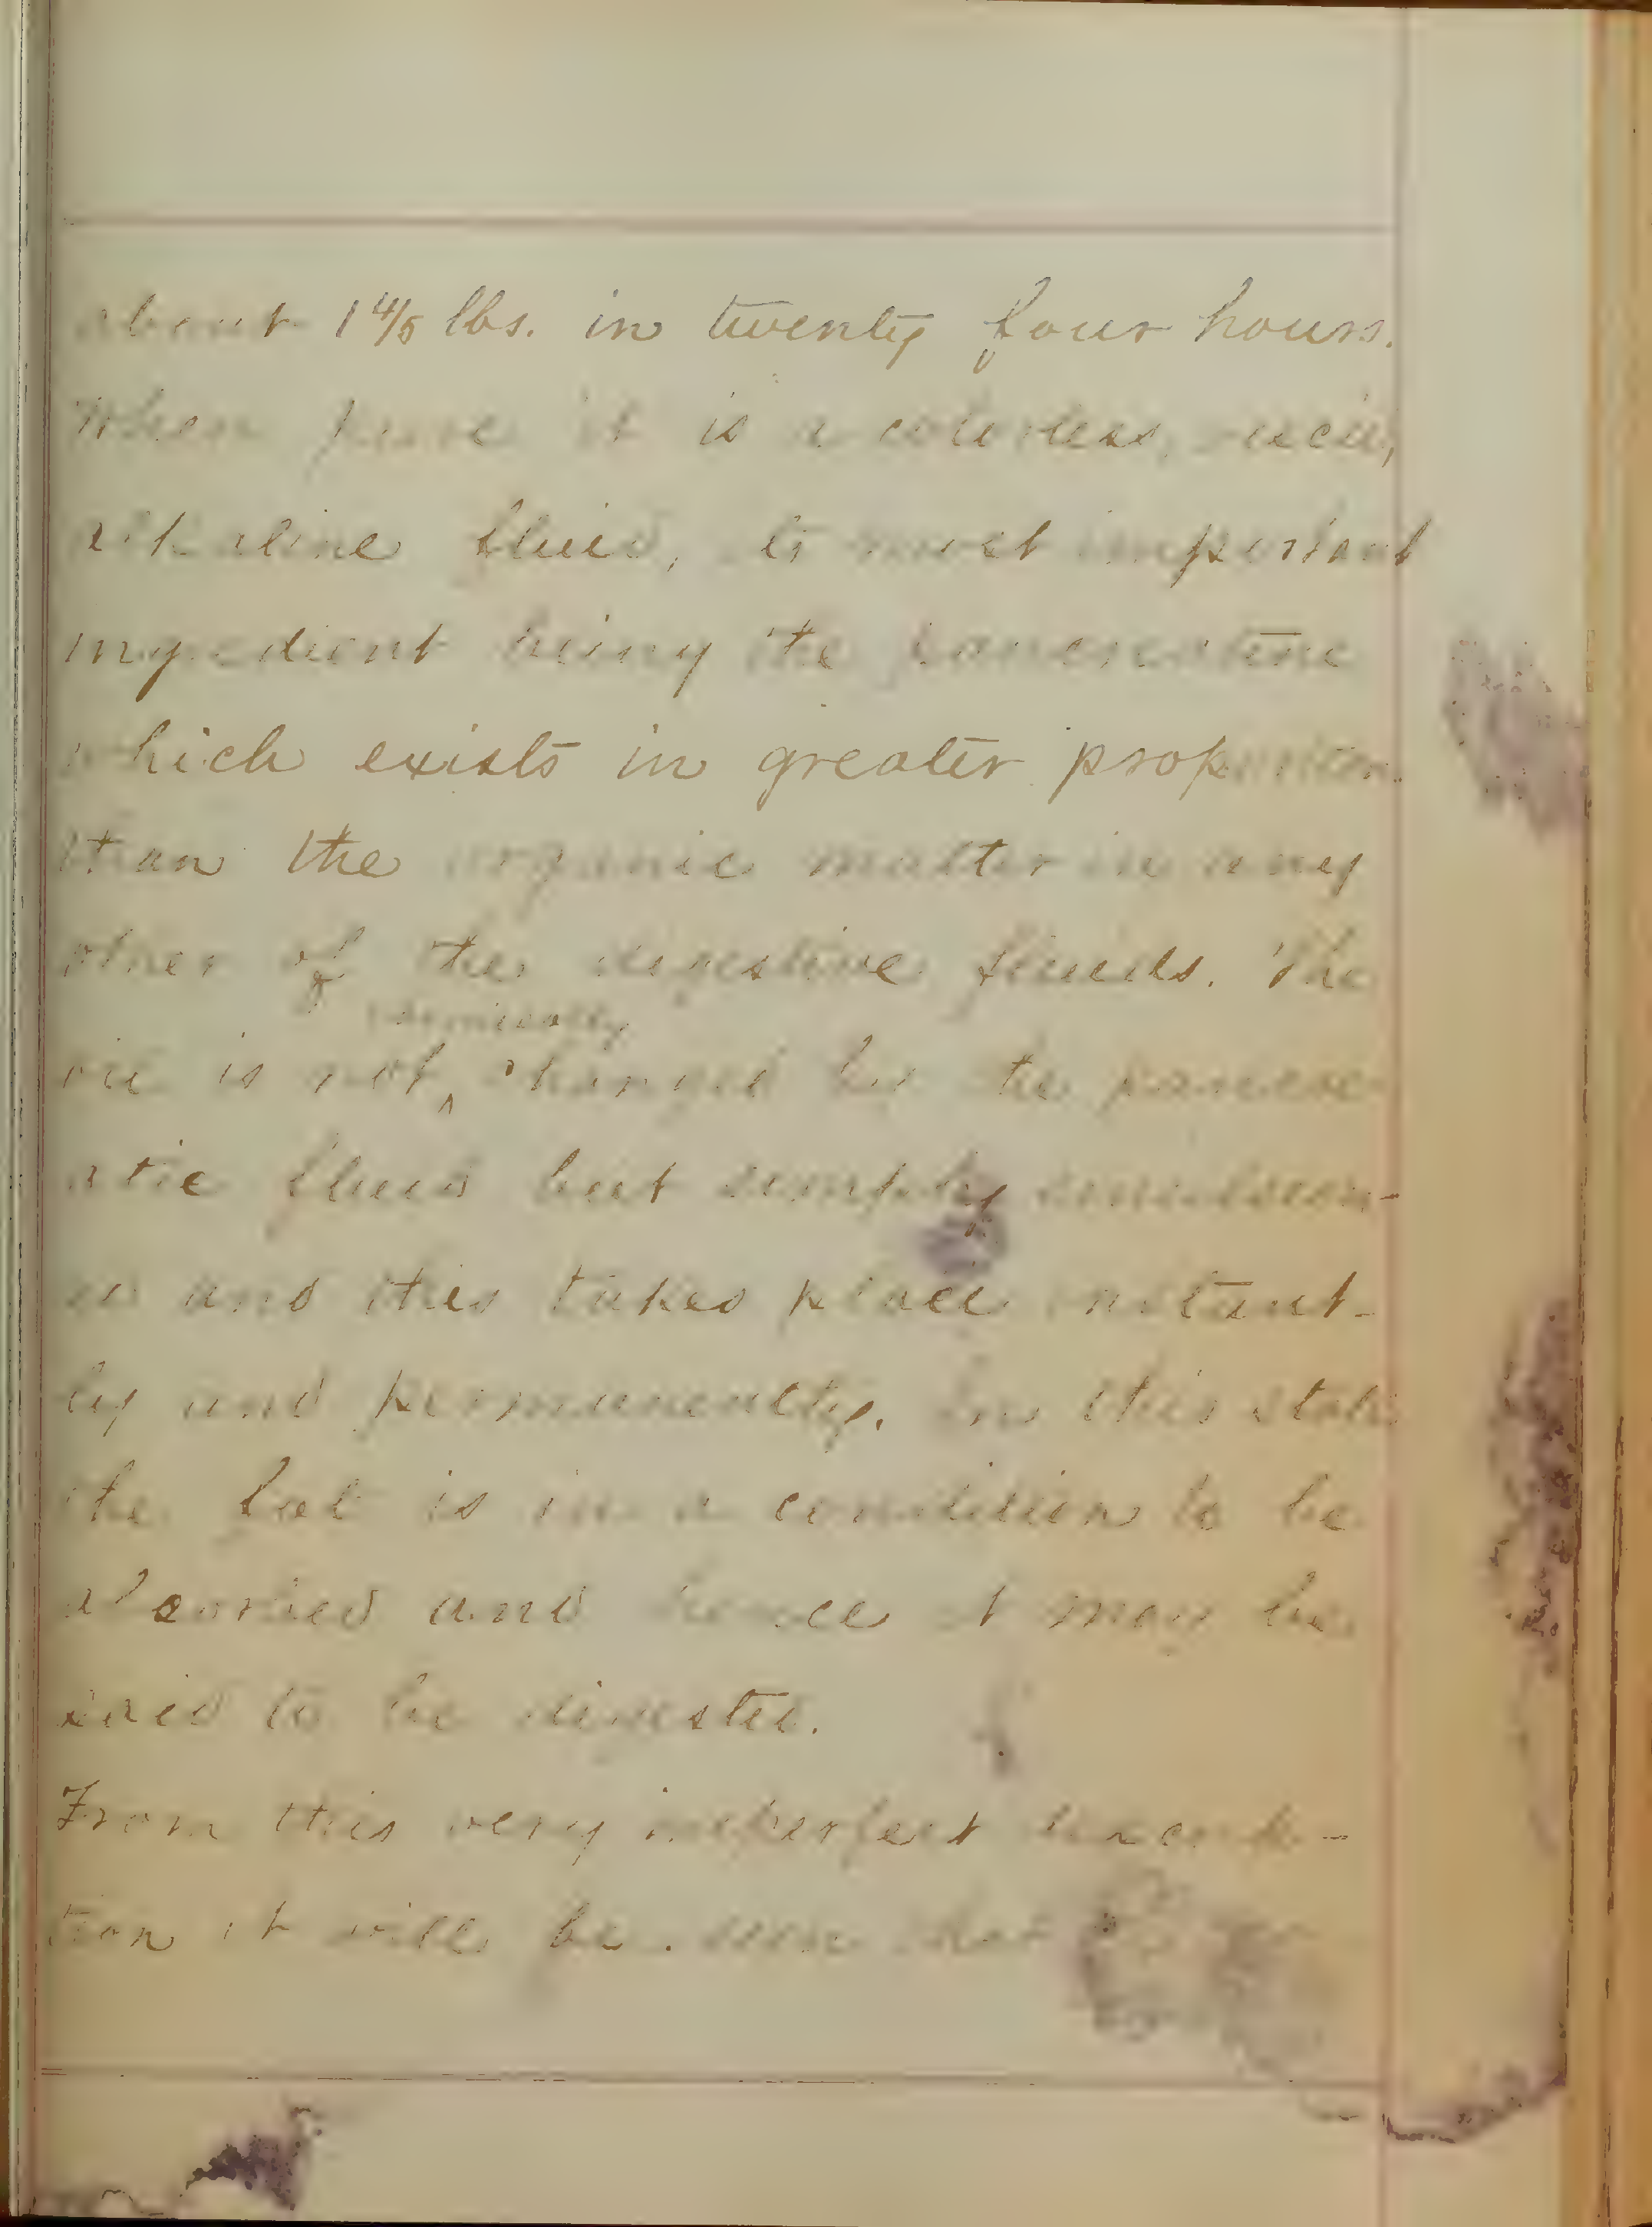 about 1 4/5 lbs. in twenty four hours.
When pure it is a colorless, viscid,
alkaline fluid, its most important
ingredient being the pancreatine
which exists in greater proportion
than the organic matter in any
other of the digestive fluids. The
oil is not chemically changed by the pancre
atic fluid but simply emulsion-
ed and this takes place instant-
ly and permanently. In this state
the fat is in a condition to be
absorbed and hence it may be
said to be digested.
From this very imperfect descrip-
tion it will be seen that